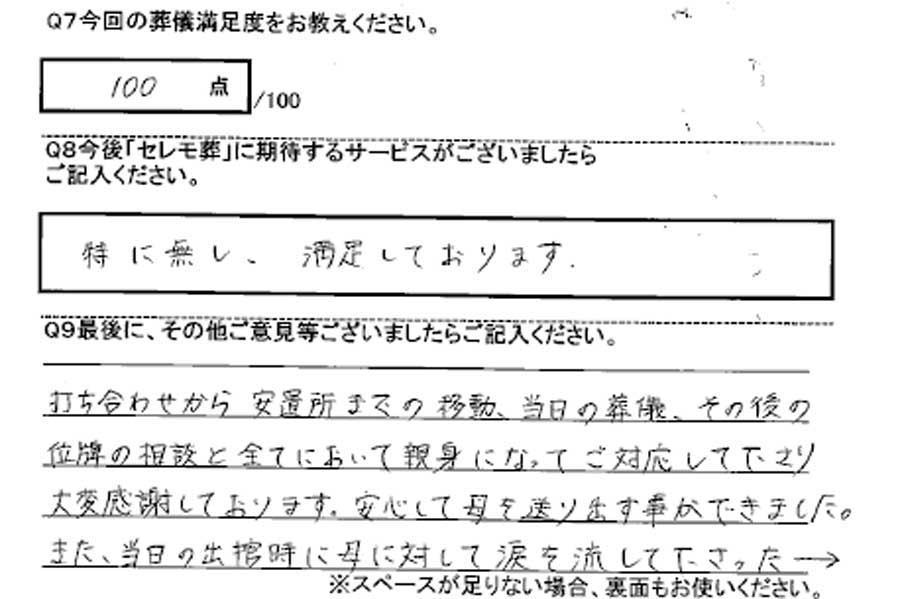 Q7今回の葬儀満足度をお教えください。
100 点 /100
Q8今後「セレモ葬」に期待するサービスがございましたら
ご記入ください。
特に無し、満足しております.
Q9最後に、その他ご意見等ございましたらご記入ください。
打ち合わせから安置所までの移動、当日の葬儀、その後の
位牌の相談と全てにおいて親身になってご対応して下さり
大変感謝しております。安心して母を送り出す事ができました。
また、当日の出棺時に母に対して涙を流して下さった→
※スペースが足りない場合、裏面もお使いください。